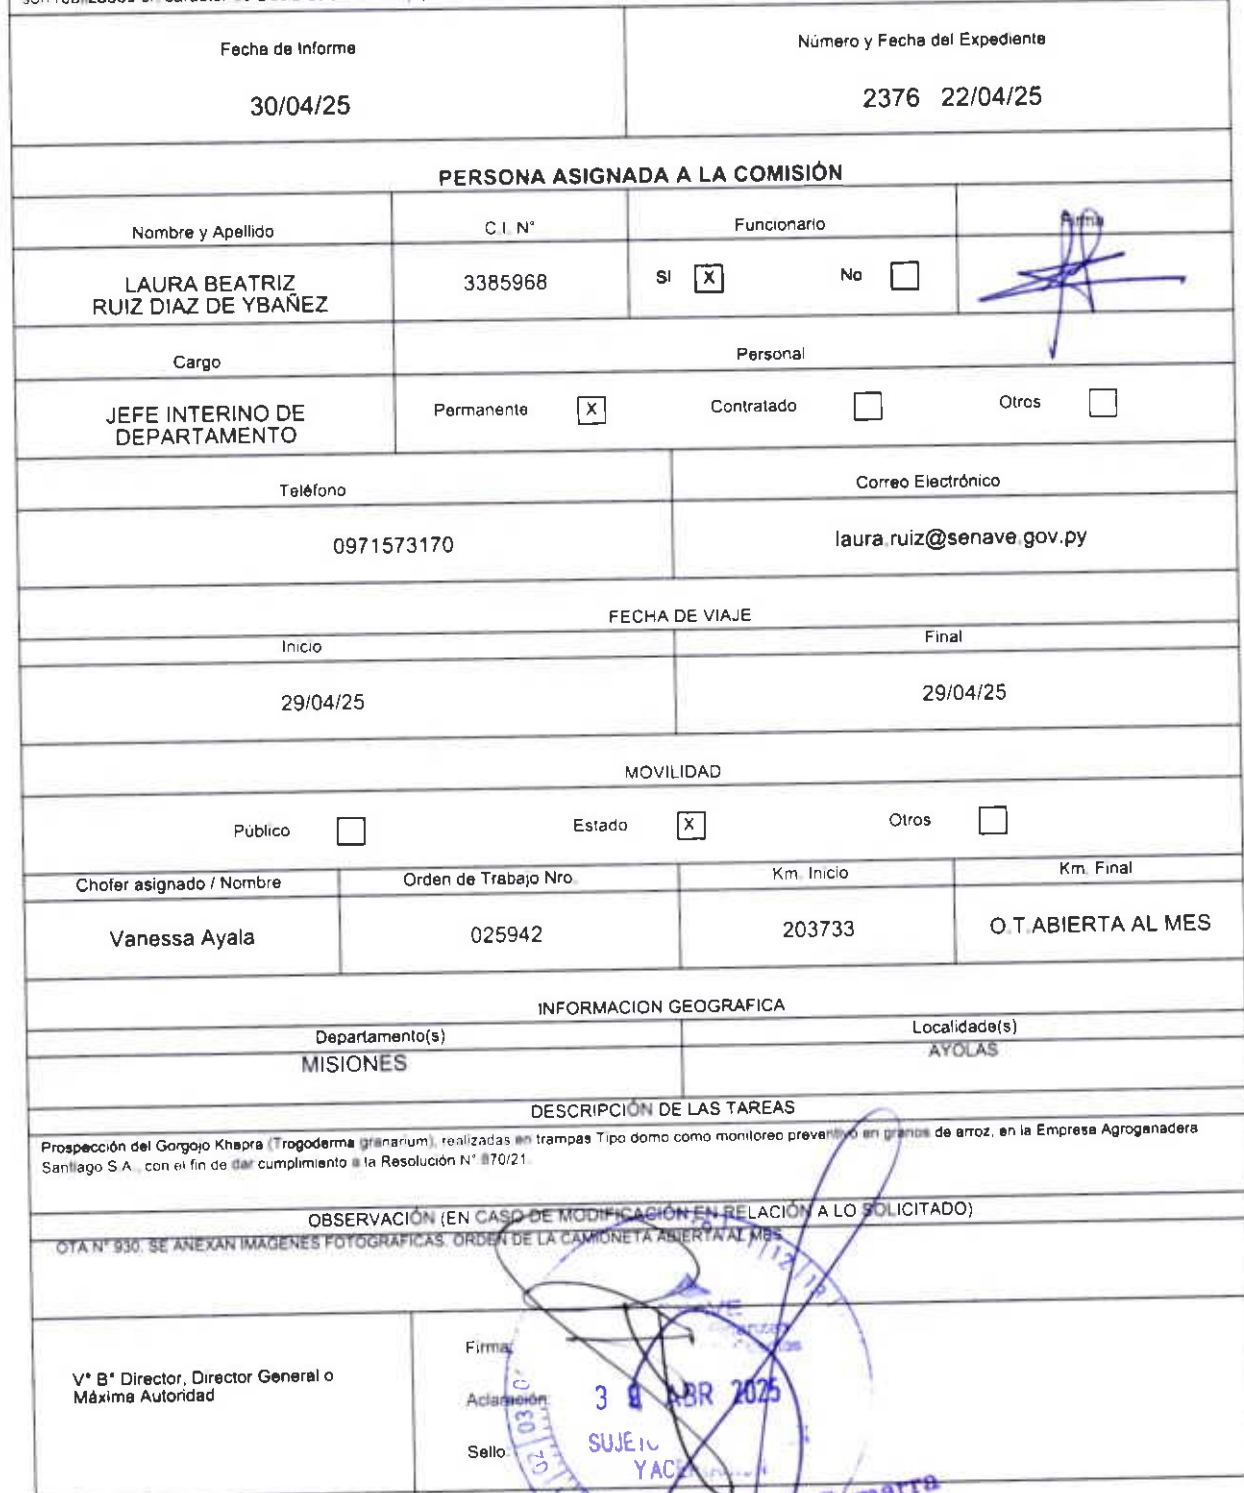 Fecha de Informe
Número y Fecha del Expediente
30/04/25
2376 22/04/25
PERSONA ASIGNADA A LA COMISIÓN
Nombre y Apellido
C.I. N°
Funcionario
Firma
LAURA BEATRIZ
RUIZ DIAZ DE YBAÑEZ
3385968
SI X No
Cargo
Personal
JEFE INTERINO DE
DEPARTAMENTO
Permanente X Contratado Otros
Teléfono
Correo Electrónico
0971573170
laura.ruiz@senave.gov.py
FECHA DE VIAJE
Inicio
Final
29/04/25
29/04/25
MOVILIDAD
Público Estado X Otros
Chofer asignado / Nombre
Orden de Trabajo Nro.
Km. Inicio
Km. Final
Vanessa Ayala
025942
203733
O.T.ABIERTA AL MES
INFORMACION GEOGRAFICA
Departamento(s)
Localidade(s)
MISIONES
AYOLAS
DESCRIPCIÓN DE LAS TAREAS
Prospección del Gorgojo Khapra (Trogoderma granarium), realizadas en trampas Tipo domo como monitoreo preventivo en granos de arroz, en la Empresa Agroganadera
Santiago S.A., con el fin de dar cumplimiento a la Resolución N° 870/21.
OBSERVACIÓN (EN CASO DE MODIFICACIÓN EN RELACIÓN A LO SOLICITADO)
OTA N° 930. SE ANEXAN IMAGENES FOTOGRAFICAS. ORDEN DE LA CAMIONETA ABIERTA AL MES
V° B° Director, Director General o
Máxima Autoridad
Firma:
Aclaración:
Sello:
ABR 2025